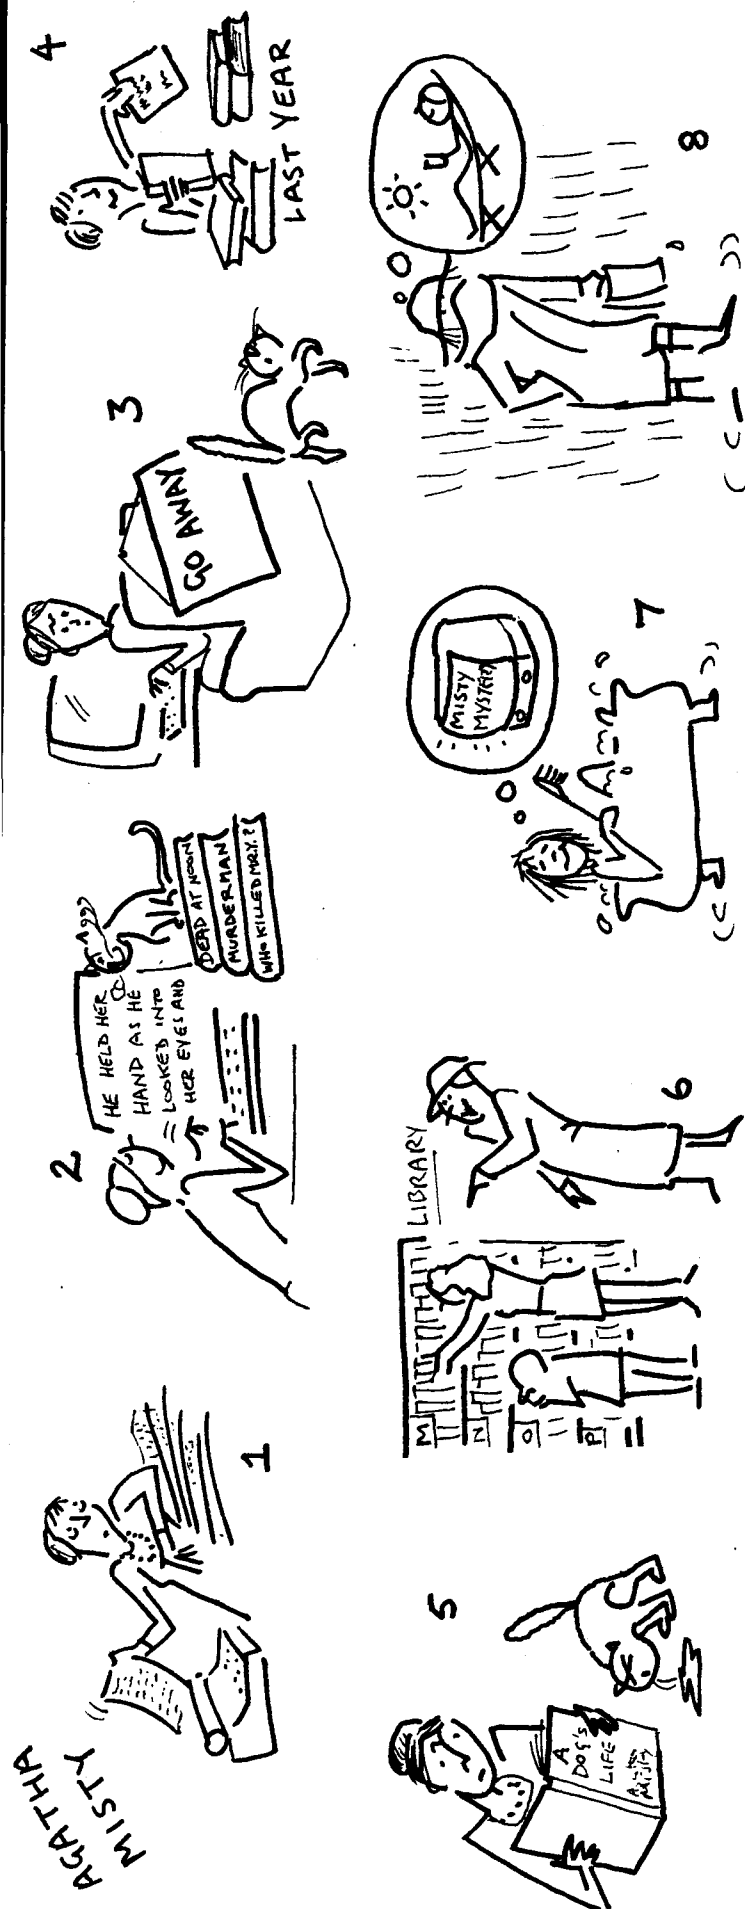 AGATHA
MISTY
1
2
HE HELD HER
HAND AS HE
LOOKED INTO
HER EYES AND
DEAD AT NOON
MURDERMAN
WHO KILLED MR.Y.?
3
GO AWAY
4
LAST YEAR
5
A
DOG'S
LIFE
6
LIBRARY
M
N
O
P
7
MISTY
MYSTERY
8